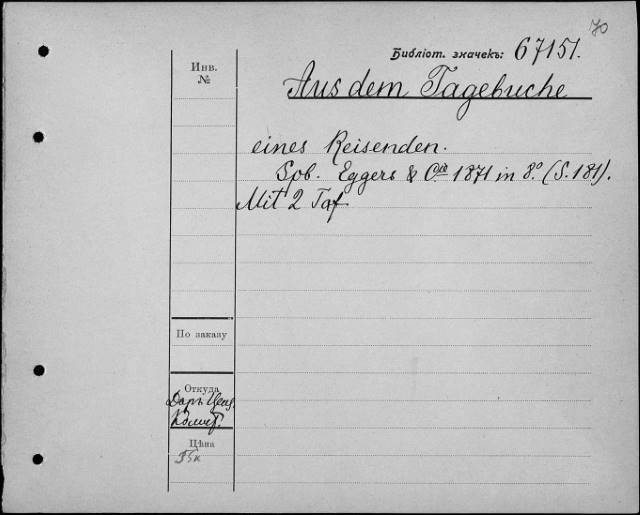 70
Библіот. значекъ: 67151.
Инв.
№
Aus dem Tagebuche
eines Reisenden.
Spb. Eggers & Cie 1871 in 8.° (S. 181).
Mit 2 Taf
По заказу
Откуда
Даръ Ценз.
Комит.
Цѣна